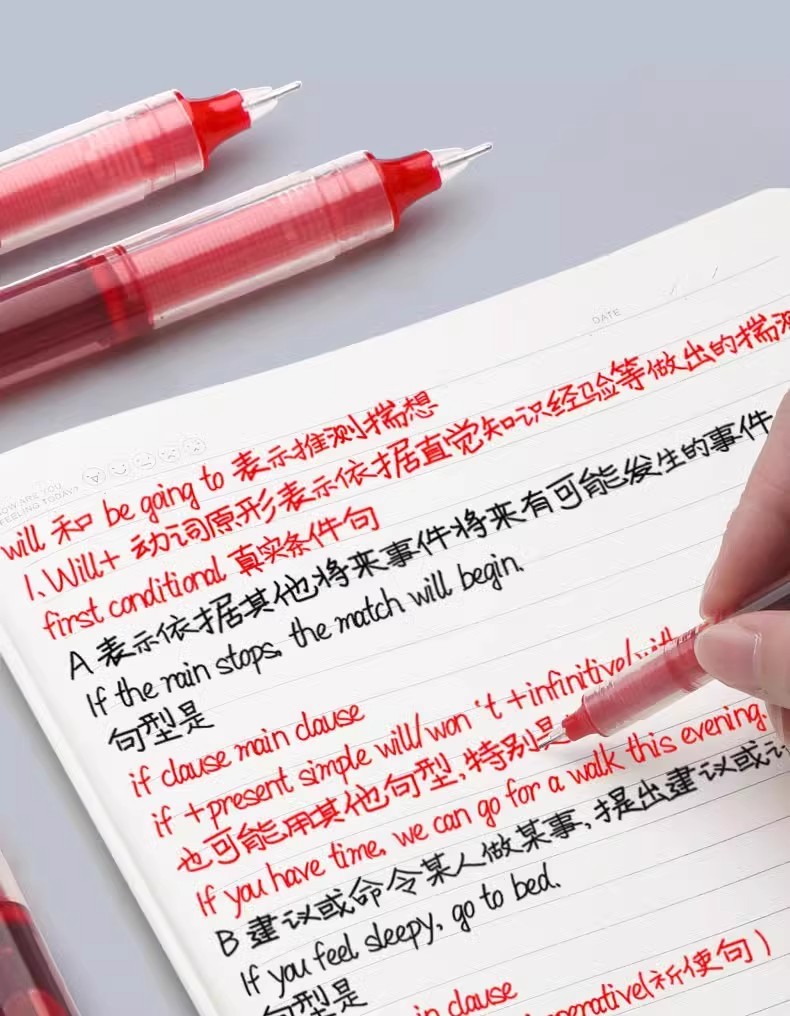 DATE
HOW ARE YOU
FEELING TODAY?
will 和 be going to 表示推测揣想
1、Will+ 动词原形表示依据直觉知识经验等做出的揣测
first conditional 真实条件句
A 表示依据其他将来事件将来有可能发生的事件
If the rain stops, the match will begin.
句型是
if clause main clause
if +present simple will/won't +infinitive/
也可能用其他句型,特别是
If you have time, we can go for a walk this evening.
B 建议或命令某人做某事,提出建议或
If you feel sleepy, go to bed.
句型是
clause
(祈使句)